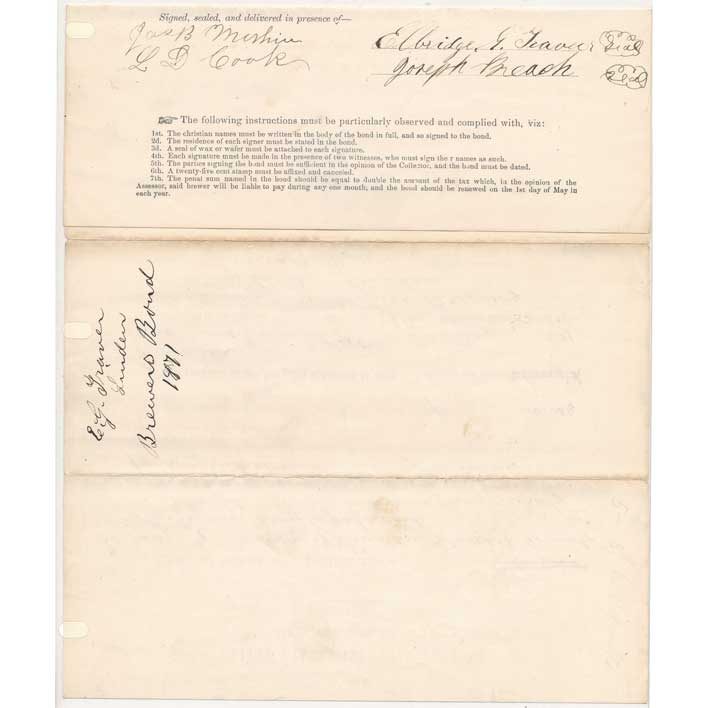 Signed, sealed, and delivered in presence of—
Jas B
L D Cook
Elbridge G. Traver Seal
Joseph Breach Seal
☞ The following instructions must be particularly observed and complied with, viz:
1st. The christian names must be written in the body of the bond in full, and so signed to the bond.
2d. The residence of each signer must be stated in the bond.
3d. A seal of wax or wafer must be attached to each signature.
4th. Each signature must be made in the presence of two witnesses, who must sign the r names as such.
5th. The parties signing the bond must be sufficient in the opinion of the Collector, and the bond must be dated.
6th. A twenty-five cent stamp must be affixed and canceled.
7th. The penal sum named in the bond should be equal to double the amount of the tax which, in the opinion of the
Assessor, said brewer will be liable to pay during any one month; and the bond should be renewed on the 1st day of May in
each year.
E.G. Traver
Linden
Brewers Bond
1871